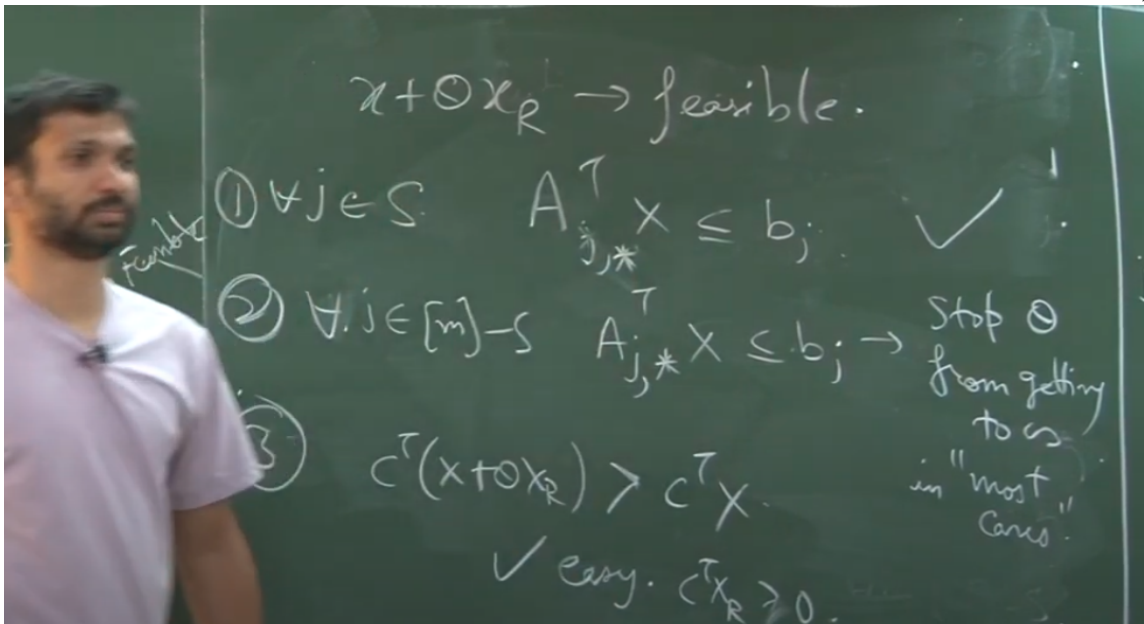 x+θx_R → feasible.
① ∀j∈S A_{j,*}^T x ≤ b_j ✓
Feasible
② ∀ j∈[m]-S A_{j,*}^T x ≤ b_j → Stop θ
from getting
to ∞
in "most
cases."
③ c^T(x+θx_R) > c^T x.
✓ easy. c^T x_R > 0.